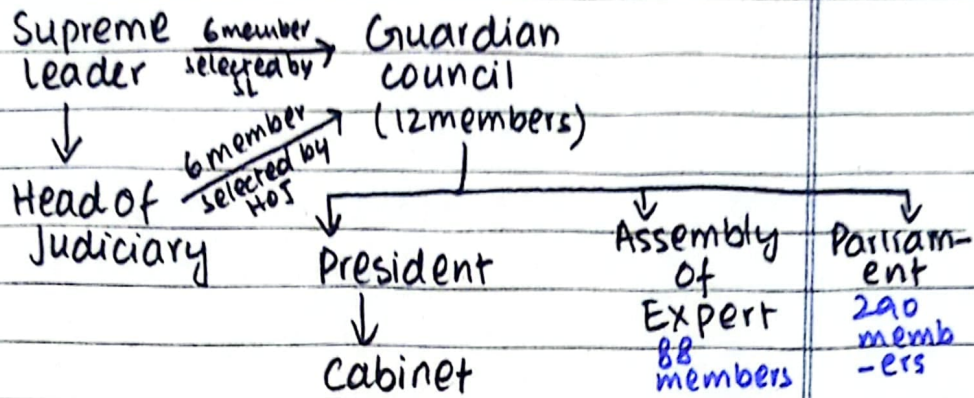 Supreme
leader
6 member
selected by
SL
Guardian
council
(12 members)
6 member
selected by
HOJ
Head of
Judiciary
President
Cabinet
Assembly
of
Expert
88
members
Parliam-
ent
290
memb
-ers